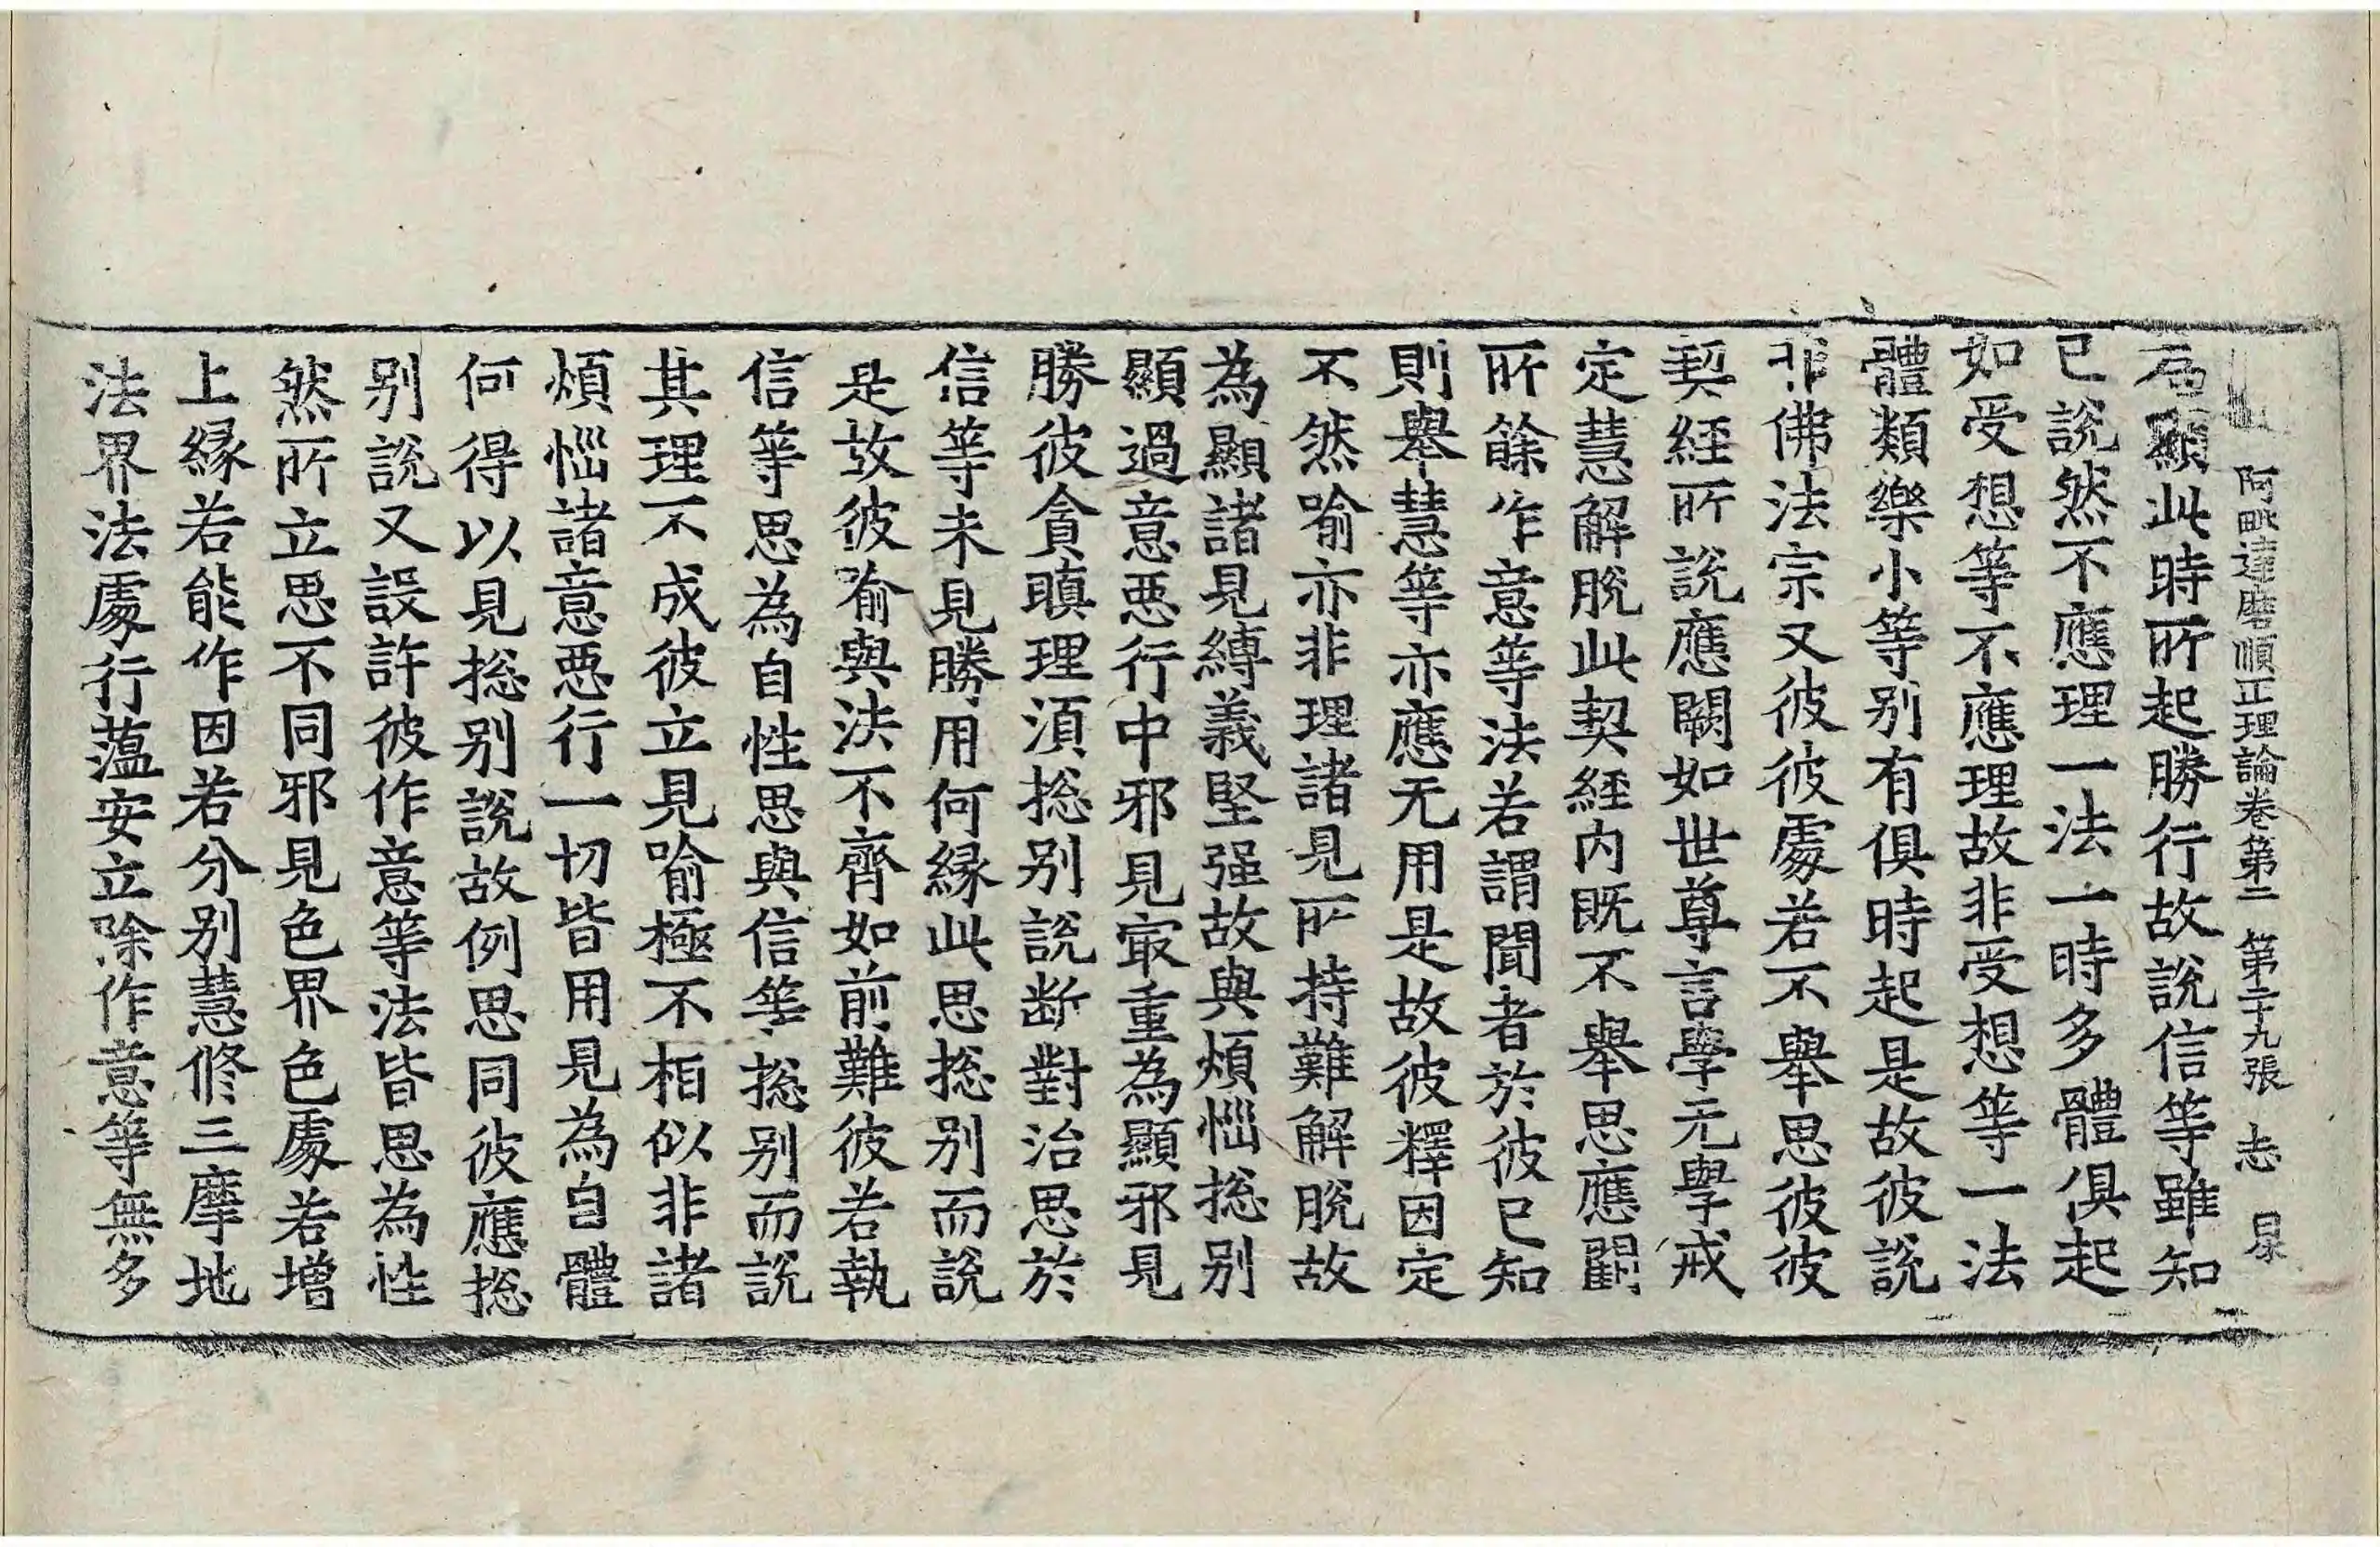 阿毗達磨順正理論卷第二 第二十九張 志
顯此時所起勝行故說信等雖知
已說然不應理一法一時多體俱起
如受想等不應理故非受想等一法
體類樂小等别有俱時起是故彼說
非佛法宗又彼彼處若不舉思彼彼
契經所說應闕如世尊言學无學戒
定慧解脫此契經內既不舉思應闕
所餘作意等法若謂聞者於彼已知
則舉慧等亦應无用是故彼釋因定
不然喻亦非理諸見所持難解脫故
為顯諸見縛義堅强故與煩惱捴别
顯過意惡行中邪見㝡重為顯邪見
勝彼貪瞋理須捴别說断對治思於
信等未見勝用何縁此思捴别而說
是故彼喻與法不齊如前難彼若執
信等思為自性思與信等捴别而說
其理不成彼立見喻極不相似非諸
煩惱諸意惡行一切皆用見為自體
何得以見捴别說故例思同彼應捴
别說又設許彼作意等法皆思為性
然所立思不同邪見色界色處若增
上縁若能作因若分别慧修三摩地
法界法處行蕴安立除作意等無多